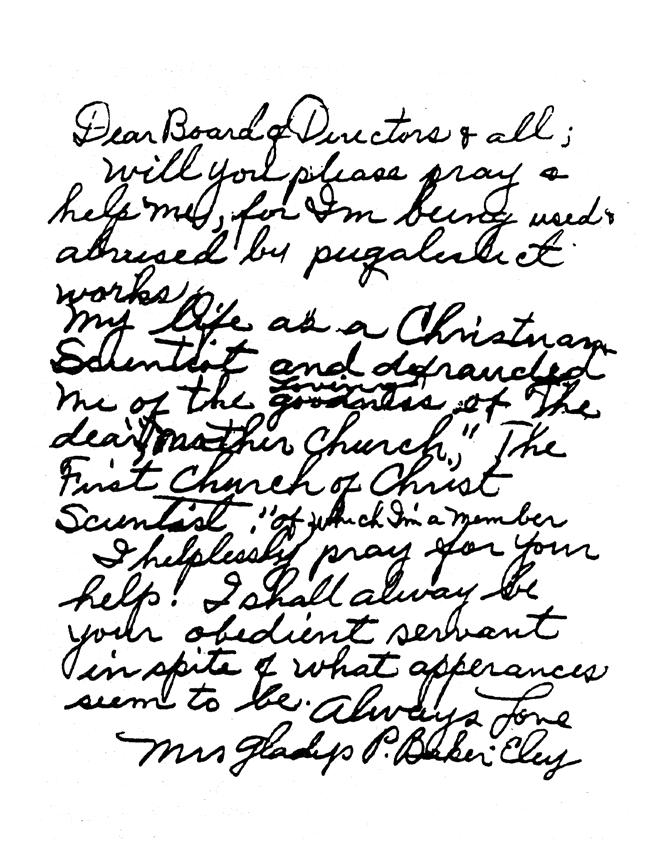 Dear Board of Directors & all;
Will you please pray &
help me, for I'm being used &
abused by pugalistict
works.
My life as a Christian
Scientist and defrauded
Loving
me of the goodness of The
dear, "Mother Church," The
First Church of Christ
Scientist." of which I'm a member
I helplessly pray for your
help! I shall alway be
your obedient servant
in spite of what apperances
seem to be. Always Love
Mrs Gladys P. Baker Eley